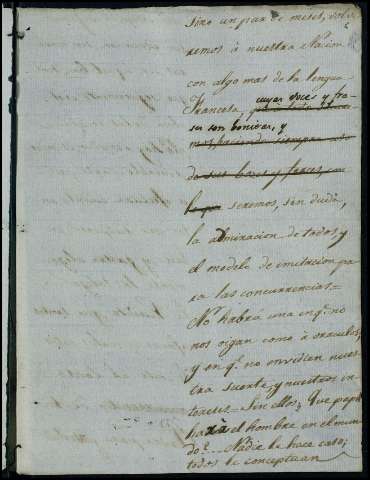 sino un par de meses, volve
remos á nuestra Nacion
con algo mas de la lengua
Francesa, cuyas voces y fra-
ses son bonitas, y
seremos, sin duda,
la admiracion de todos, y
el modelo de imitacion pa
ra las concurrencias =
No habrá una en q.e no
nos oygan como á oraculos,
y en q.e no envidien nues
tra suerte, y nuestros in
tereses = Sin ellos, que papel
hará el hombre en el mun
do? ... Nadie le hace caso;
todos le conceptuan